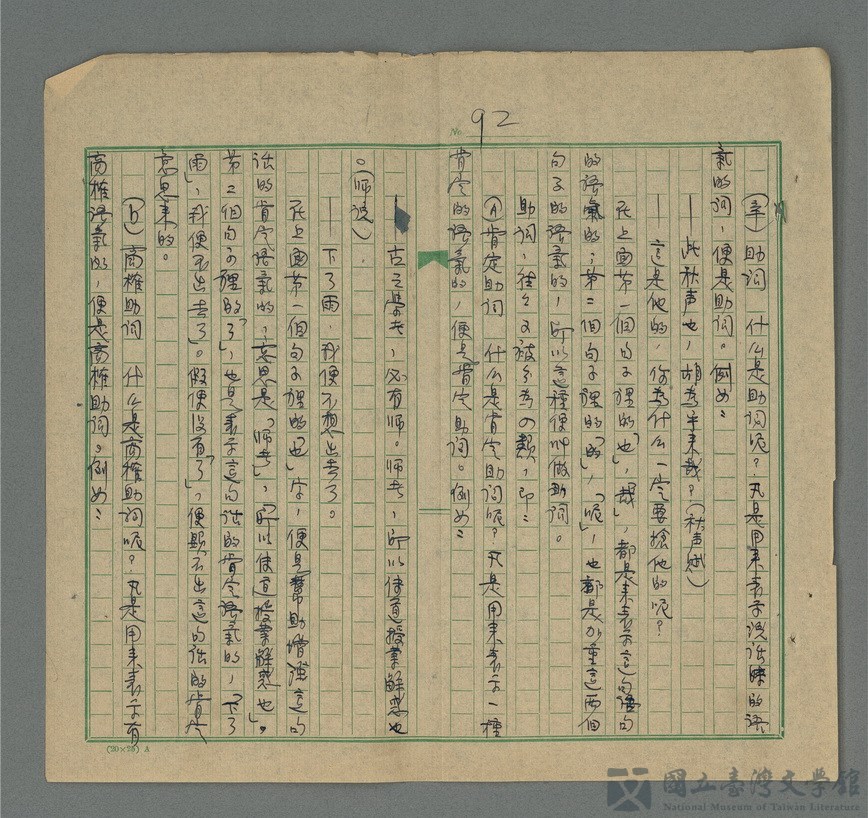 No. 92
(辛)助词 什么是助词呢?凡是用来表示说话时的语
气的词,便是助词。例如:
—此秋声也,胡为乎来哉?(秋声赋)
—这是他的,你为什么一定要抢他的呢?
在上面第一個句子裡的「也」,「哉」,都是来表示這句語句
的語氣的;第二個句子裡的「的」,「呢」,也都是加重這两個
句子的語氣的,所以這種便叫做助词。
助词,往往又被分為四類,即:
(A)肯定助词 什么是肯定助词呢?凡是用来表示一種
肯定的語氣的,便是肯定助词。例如:
—古之學者,必有師。師者,所以傳道授業解惑也
。(師說)
下了雨,我便不想出去了。
在上面第一個句子裡的「也」字,便是幫助增强這句
话的肯定語氣的,意思是「師者」,「所以傳道授業解惑也」。
第二個句子裡的「了」,也是表示這句话的肯定語氣的,「下了
雨」,我便不出去了」。假使沒有「了」,便顯不出這句话的肯定
意思来的。
(B)商榷助词 什么是商榷助词呢?凡是用来表示有
商榷語氣的,便是商榷助词。例如:
(20×25) A
國立臺灣文學館
National Museum of Taiwan Literature